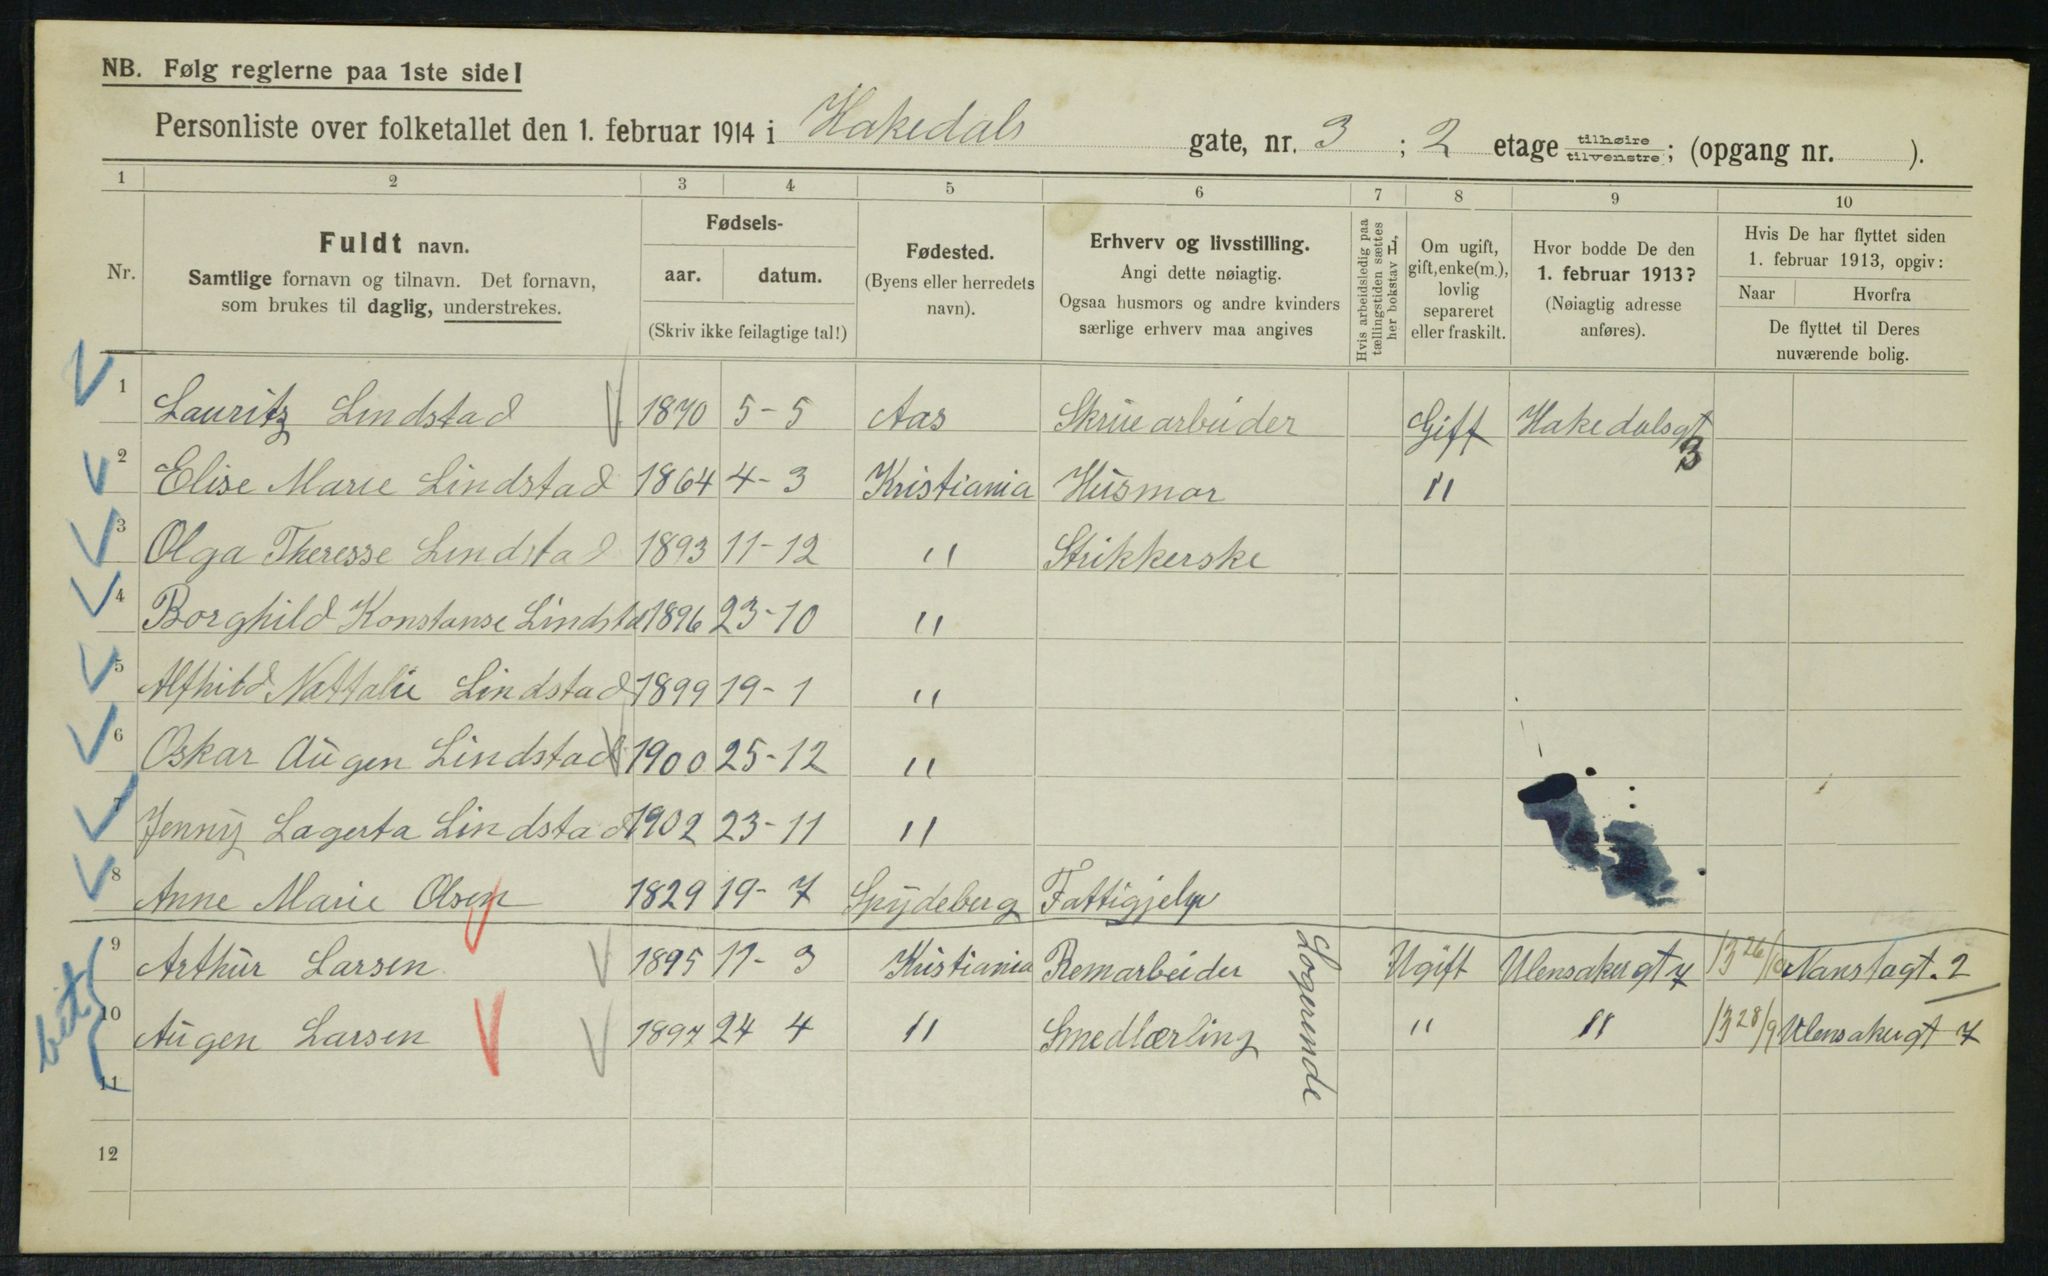 NB. Følg reglerne paa 1ste side!
Personliste over folketallet den 1. februar 1914 i Hakedals gate, nr. 3 ; 2 etage tilhøire tilvenstre; (opgang nr. ).
1 2 3 4 5 6 7 8 9 10
Nr.
Fuldt navn.
Samtlige fornavn og tilnavn. Det fornavn,
som brukes til daglig, understrekes.
Fødsels-
aar. datum.
(Skriv ikke feilagtige tal!)
Fødested.
(Byens eller herredets
navn).
Erhverv og livsstilling.
Angi dette nøiagtig.
Ogsaa husmors og andre kvinders
særlige erhverv maa angives
Hvis arbeidsledig paa
tællingstiden sættes
her bokstav H,
Om ugift,
gift, enke(m.),
lovlig
separeret
eller fraskilt.
Hvor bodde De den
1. februar 1913?
(Nøiagtig adresse
anføres).
Hvis De har flyttet siden
1. februar 1913, opgiv:
Naar Hvorfra
De flyttet til Deres
nuværende bolig.
1 Lauritz Lindstad 1870 5-5 Aas Skruearbeider Gift Hakedalsgt 3
2 Elise Marie Lindstad 1864 4-3 Kristiania Husmor "
3 Olga Theresse Lindstad 1893 11-12 " Strikkerske
4 Borghild Konstanse Lindstad 1896 23-10 "
5 Alfhild Nattalie Lindstad 1899 19-1 "
6 Oskar Augen Lindstad 1900 25-12 "
7 Jenny Lagerta Lindstad 1902 23-11 "
8 Anne Marie Olsen 1829 19-7 Spydeberg Fattigjelp
9 Arthur Larsen 1895 11-3 Kristiania Remarbeider Ugift Ulensakergt 7 13 26/10 Nanstagt. 2
10 Augen Larsen 1897 24 4 " Smedlærling " " 13 28/9 Ulensakergt 7
Logerende
11
12